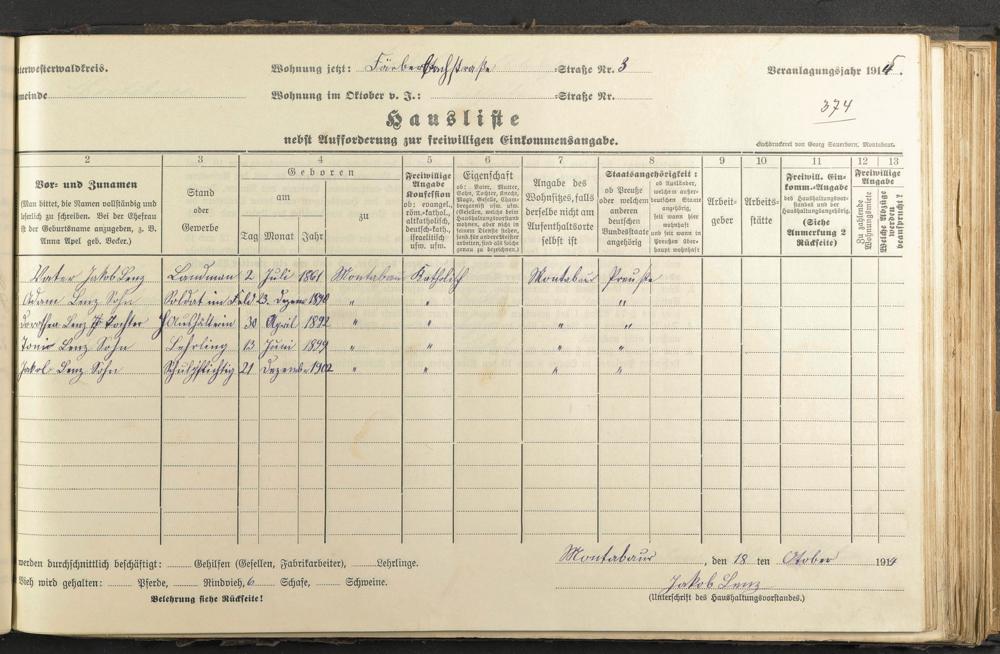 nterwesterwaldkreis. Wohnung jetzt: Färberbachstraße -Straße Nr. 3 Veranlagungsjahr 1915.
meinde Wohnung im Oktober v. J.: -Straße Nr.
374
Hausliste
nebst Aufforderung zur freiwilligen Einkommensangabe.
Buchdruckerei von Georg Sauerborn, Montabaur.
2 3 4 5 6 7 8 9 10 11 12 13
Vor- und Zunamen
(Man bittet, die Namen vollständig und
leserlich zu schreiben. Bei der Ehefrau
ist der Geburtsname anzugeben, z. B.
Anna Apel geb. Becker.)
Stand
oder
Gewerbe
Geboren
am
zu
Tag Monat Jahr
Freiwillige
Angabe
Konfession
ob: evangel.,
röm.-kathol.,
altkatholisch,
deutsch-kath.,
israelitisch
usw. usw.
Eigenschaft
ob: Vater, Mutter,
Sohn, Tochter, Knecht,
Magd, Geselle, Cham-
bregarnist usw. usw.
(Gesellen, welche beim
Haushaltungsvorstand
wohnen, aber nicht in
seinem Dienste stehen,
sind für andere
arbeiten, sind als solche
genau zu bezeichnen.)
Angabe des
Wohnsitzes, falls
derselbe nicht am
Aufenthaltsorte
selbst ist
Staatsangehörigkeit:
ob Preuße
oder welchem
anderen
deutschen
Bundesstaate
angehörig
ob Ausländer,
welchem außer-
deutschen Staate
angehörig,
seit wann hier
wohnhaft
und seit wann in
Preußen über-
haupt wohnhaft
Arbeit-
geber
Arbeits-
stätte
Freiwill. Ein-
komm.-Angabe
des Haushaltungsvor-
standes und der
Haushaltungsangehörig.
(Siehe
Anmerkung 2
Rückseite)
Freiwillige
Angabe
Zu zahlende
Wohnungsmiete
Welche Abzüge
werden
beansprucht?
Vater Jakob Lenz Landman 2 Juli 1861 Montabaur Katholisch Montabaur Preuße
Adam Lenz Sohn Soldat im Feld 23. Dezem 1890 " " " "
Dorothea Lenz Tochter Haushälterin 30 April 1892 " " " "
Toni Lenz Sohn Lehrling 13 Juni 1899 " " " "
Jakob Lenz Sohn Schulpflichtig 21 Dezember 1902 " " " "
werden durchschnittlich beschäftigt: Gehilfen (Gesellen, Fabrikarbeiter), Lehrlinge.
Vieh wird gehalten: Pferde, Rindvieh, 6 Schafe, Schweine.
Belehrung siehe Rückseite!
Montabaur, den 18 ten Otober 1914
Jakob Lenz
(Unterschrift des Haushaltungsvorstandes.)